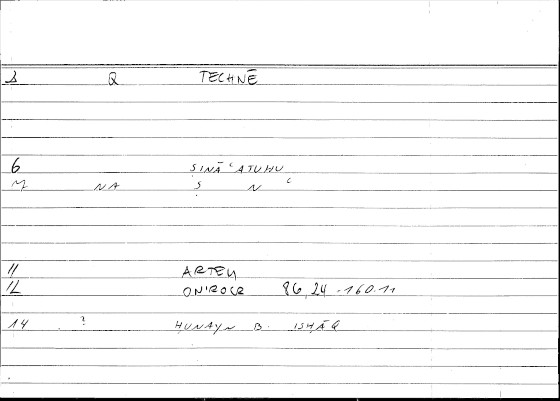 1 Q TECHNĒ
6 ṢINĀʿATUHU
7 NA Ṣ N ʿ
11 ARTEM
12 ONIROCR 86,24 - 160.11
14 ? ḤUNAYN B. ISḤĀQ